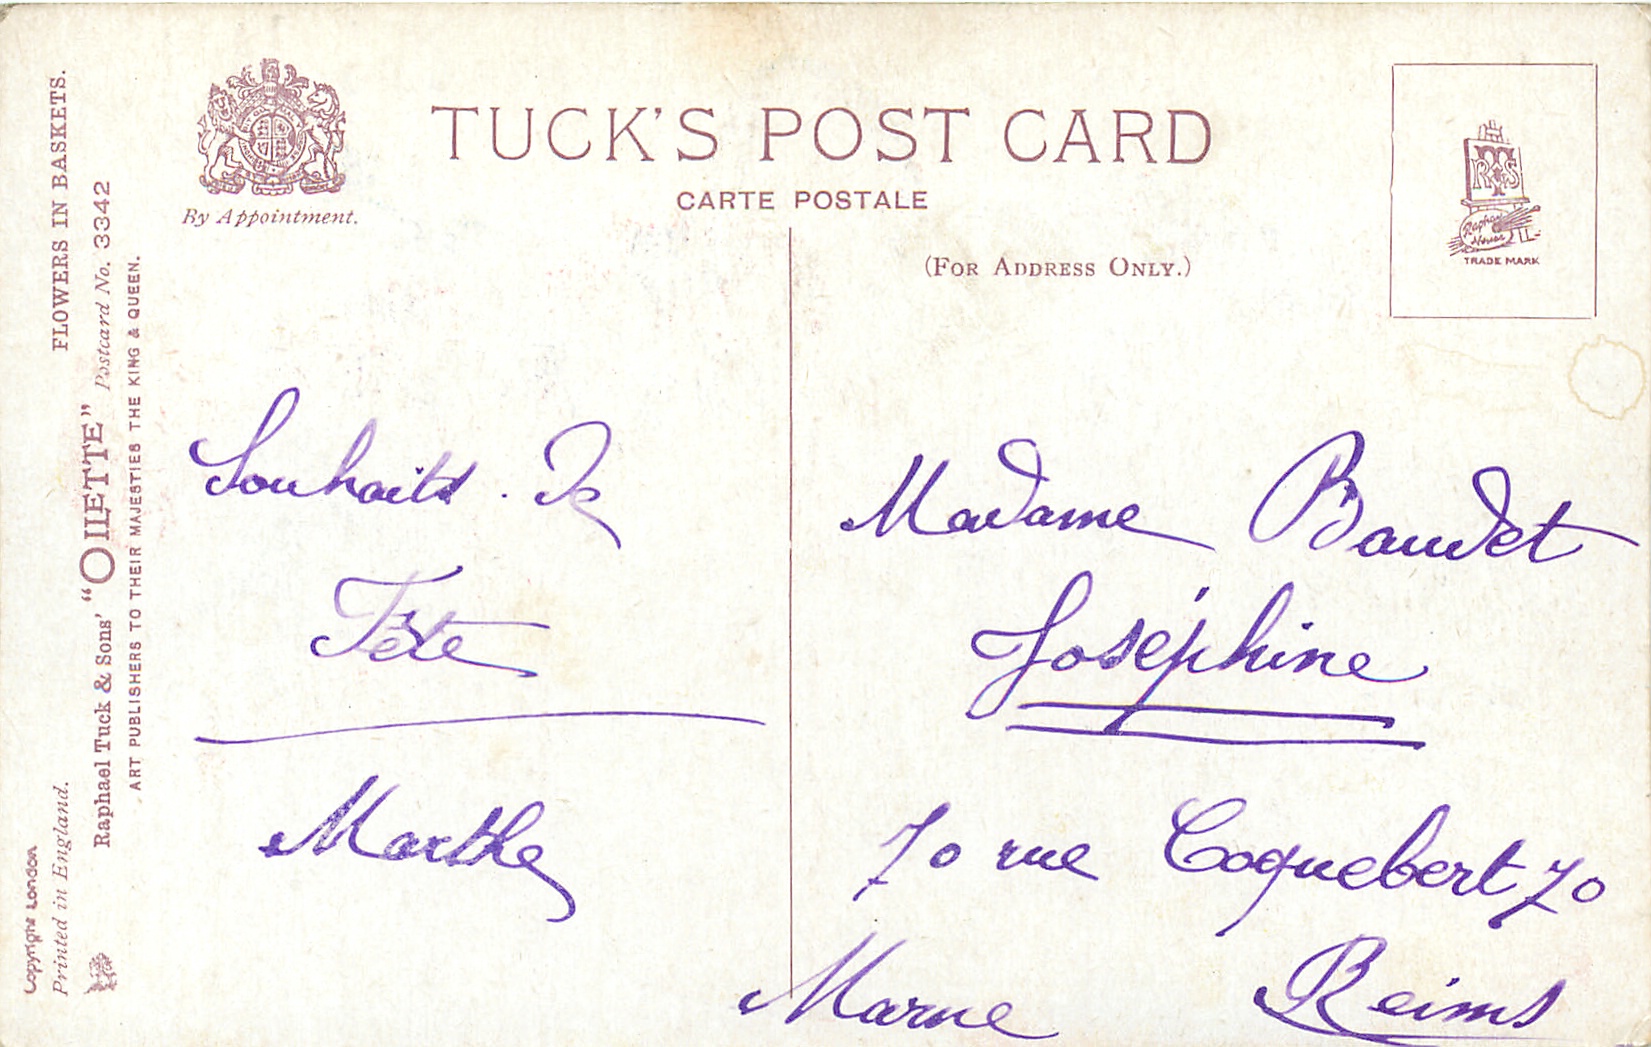 TUCK'S POST CARD
CARTE POSTALE
By Appointment.
(FOR ADDRESS ONLY.)
TRS
Raphael
House
TRADE MARK
FLOWERS IN BASKETS.
Raphael Tuck & Sons' "OILETTE" Postcard No. 3342
ART PUBLISHERS TO THEIR MAJESTIES THE KING & QUEEN.
Copyright London
Printed in England.
Souhaits de
Fête
Marthe
Madame Baudet
Joséphine
70 rue Coquebert 70
Marne Reims